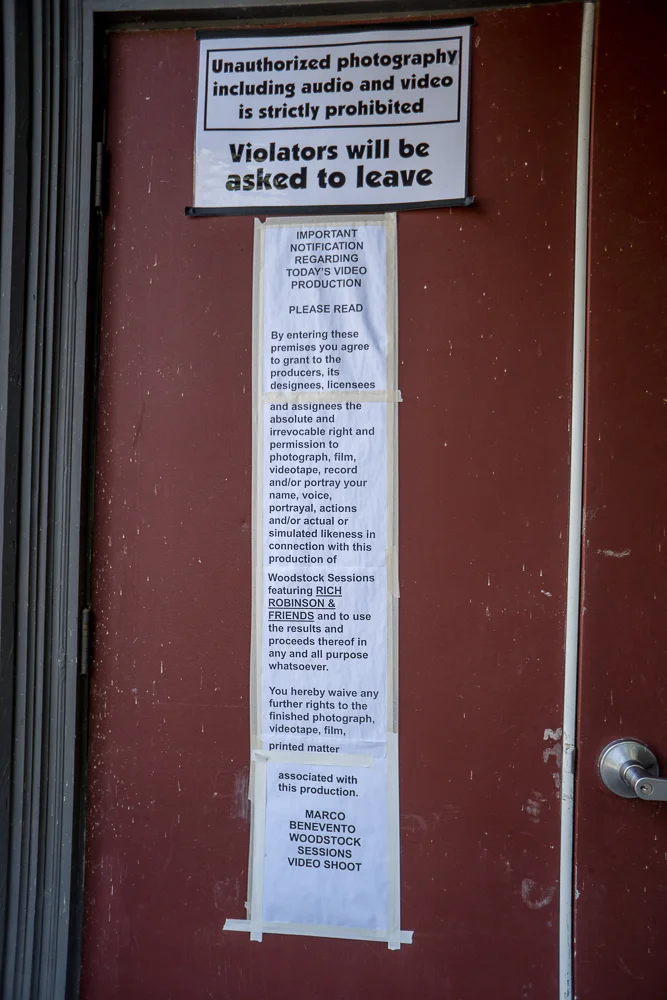 Unauthorized photography
including audio and video
is strictly prohibited
Violators will be
asked to leave
IMPORTANT
NOTIFICATION
REGARDING
TODAY'S VIDEO
PRODUCTION
PLEASE READ
By entering these
premises you agree
to grant to the
producers, its
designees, licensees
and assignees the
absolute and
irrevocable right and
permission to
photograph, film,
videotape, record
and/or portray your
name, voice,
portrayal, actions
and/or actual or
simulated likeness in
connection with this
production of
Woodstock Sessions
featuring RICH
ROBINSON &
FRIENDS and to use
the results and
proceeds thereof in
any and all purpose
whatsoever.
You hereby waive any
further rights to the
finished photograph,
videotape, film,
printed matter
associated with
this production.
MARCO
BENEVENTO
WOODSTOCK
SESSIONS
VIDEO SHOOT